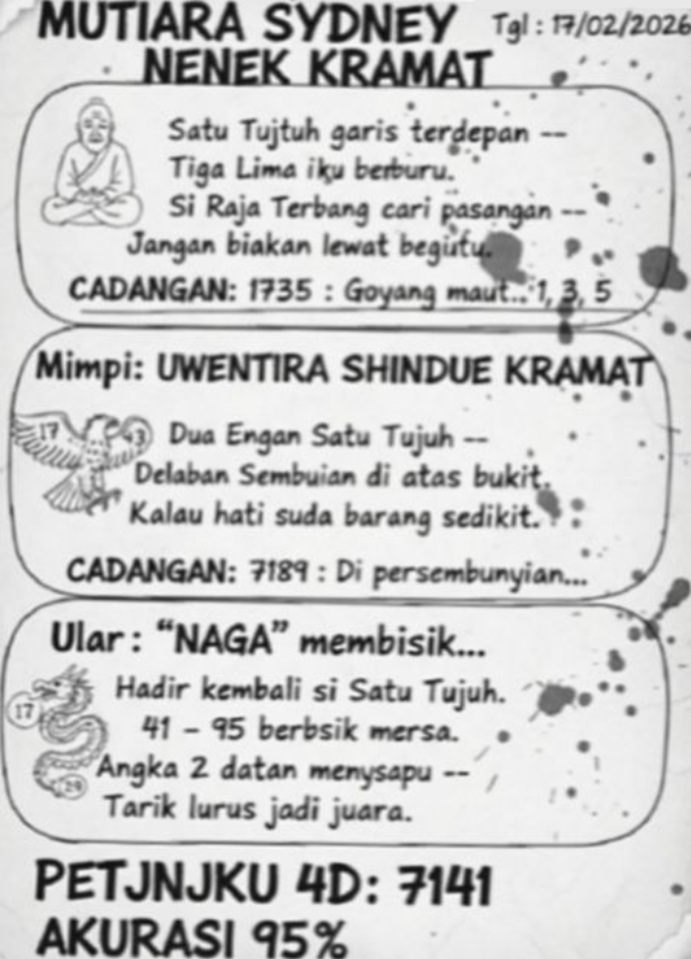 MUTIARA SYDNEY Tgl : 17/02/2026
NENEK KRAMAT
Satu Tujtuh garis terdepan --
Tiga Lima iku berburu.
Si Raja Terbang cari pasangan --
Jangan biakan lewat begiitu.
CADANGAN: 1735 : Goyang maut.. 1, 3, 5
Mimpi: UWENTIRA SHINDUE KRAMAT
17 43
Dua Engan Satu Tujuh --
Delaban Sembuian di atas bukit.
Kalau hati suda barang sedikit.
CADANGAN: 7189 : Di persembunyian...
Ular : “NAGA” membisik...
Hadir kembali si Satu Tujuh.
17
41 – 95 berbsik mersa.
Angka 2 datan menysapu --
29
Tarik lurus jadi juara.
PETJNJKU 4D: 7141
AKURASI 95%